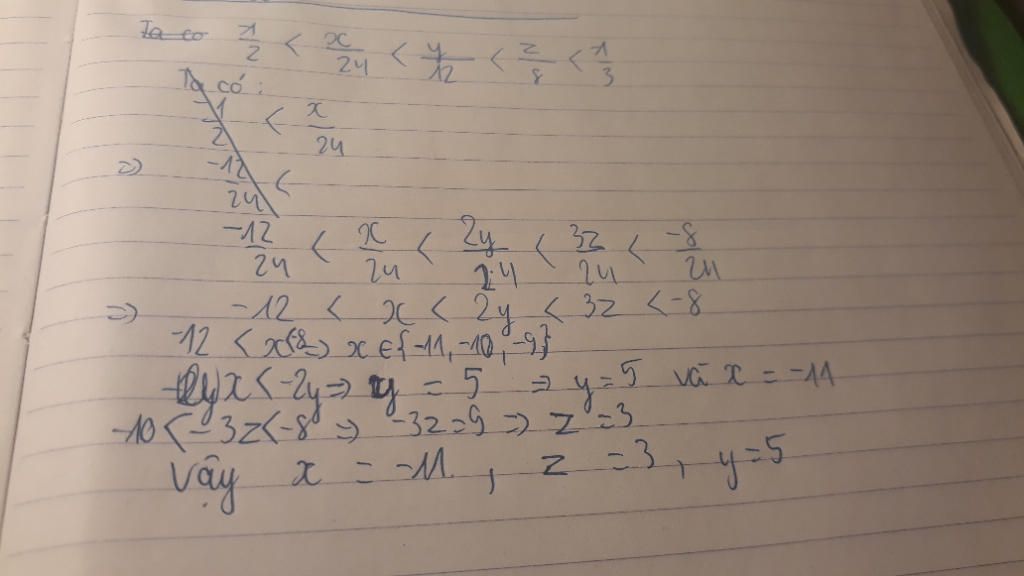 Ta có 1/2 < x/24 < y/12 < z/8 < -1/3
Ta có :
-1/2 < x/24
=> -12/24 <
-12/24 < x/24 < 2y/24 < 3z/24 < -8/24
=> -12 < x < 2y < 3z < -8
-12 < x < -8 => x ∈ {-11, -10, -9}
x < -2y => y = 5 => y = 5 và x = -11
-10 < -3z < -8 => -3z = 9 => z = 3
Vậy x = -11, z = 3, y = 5